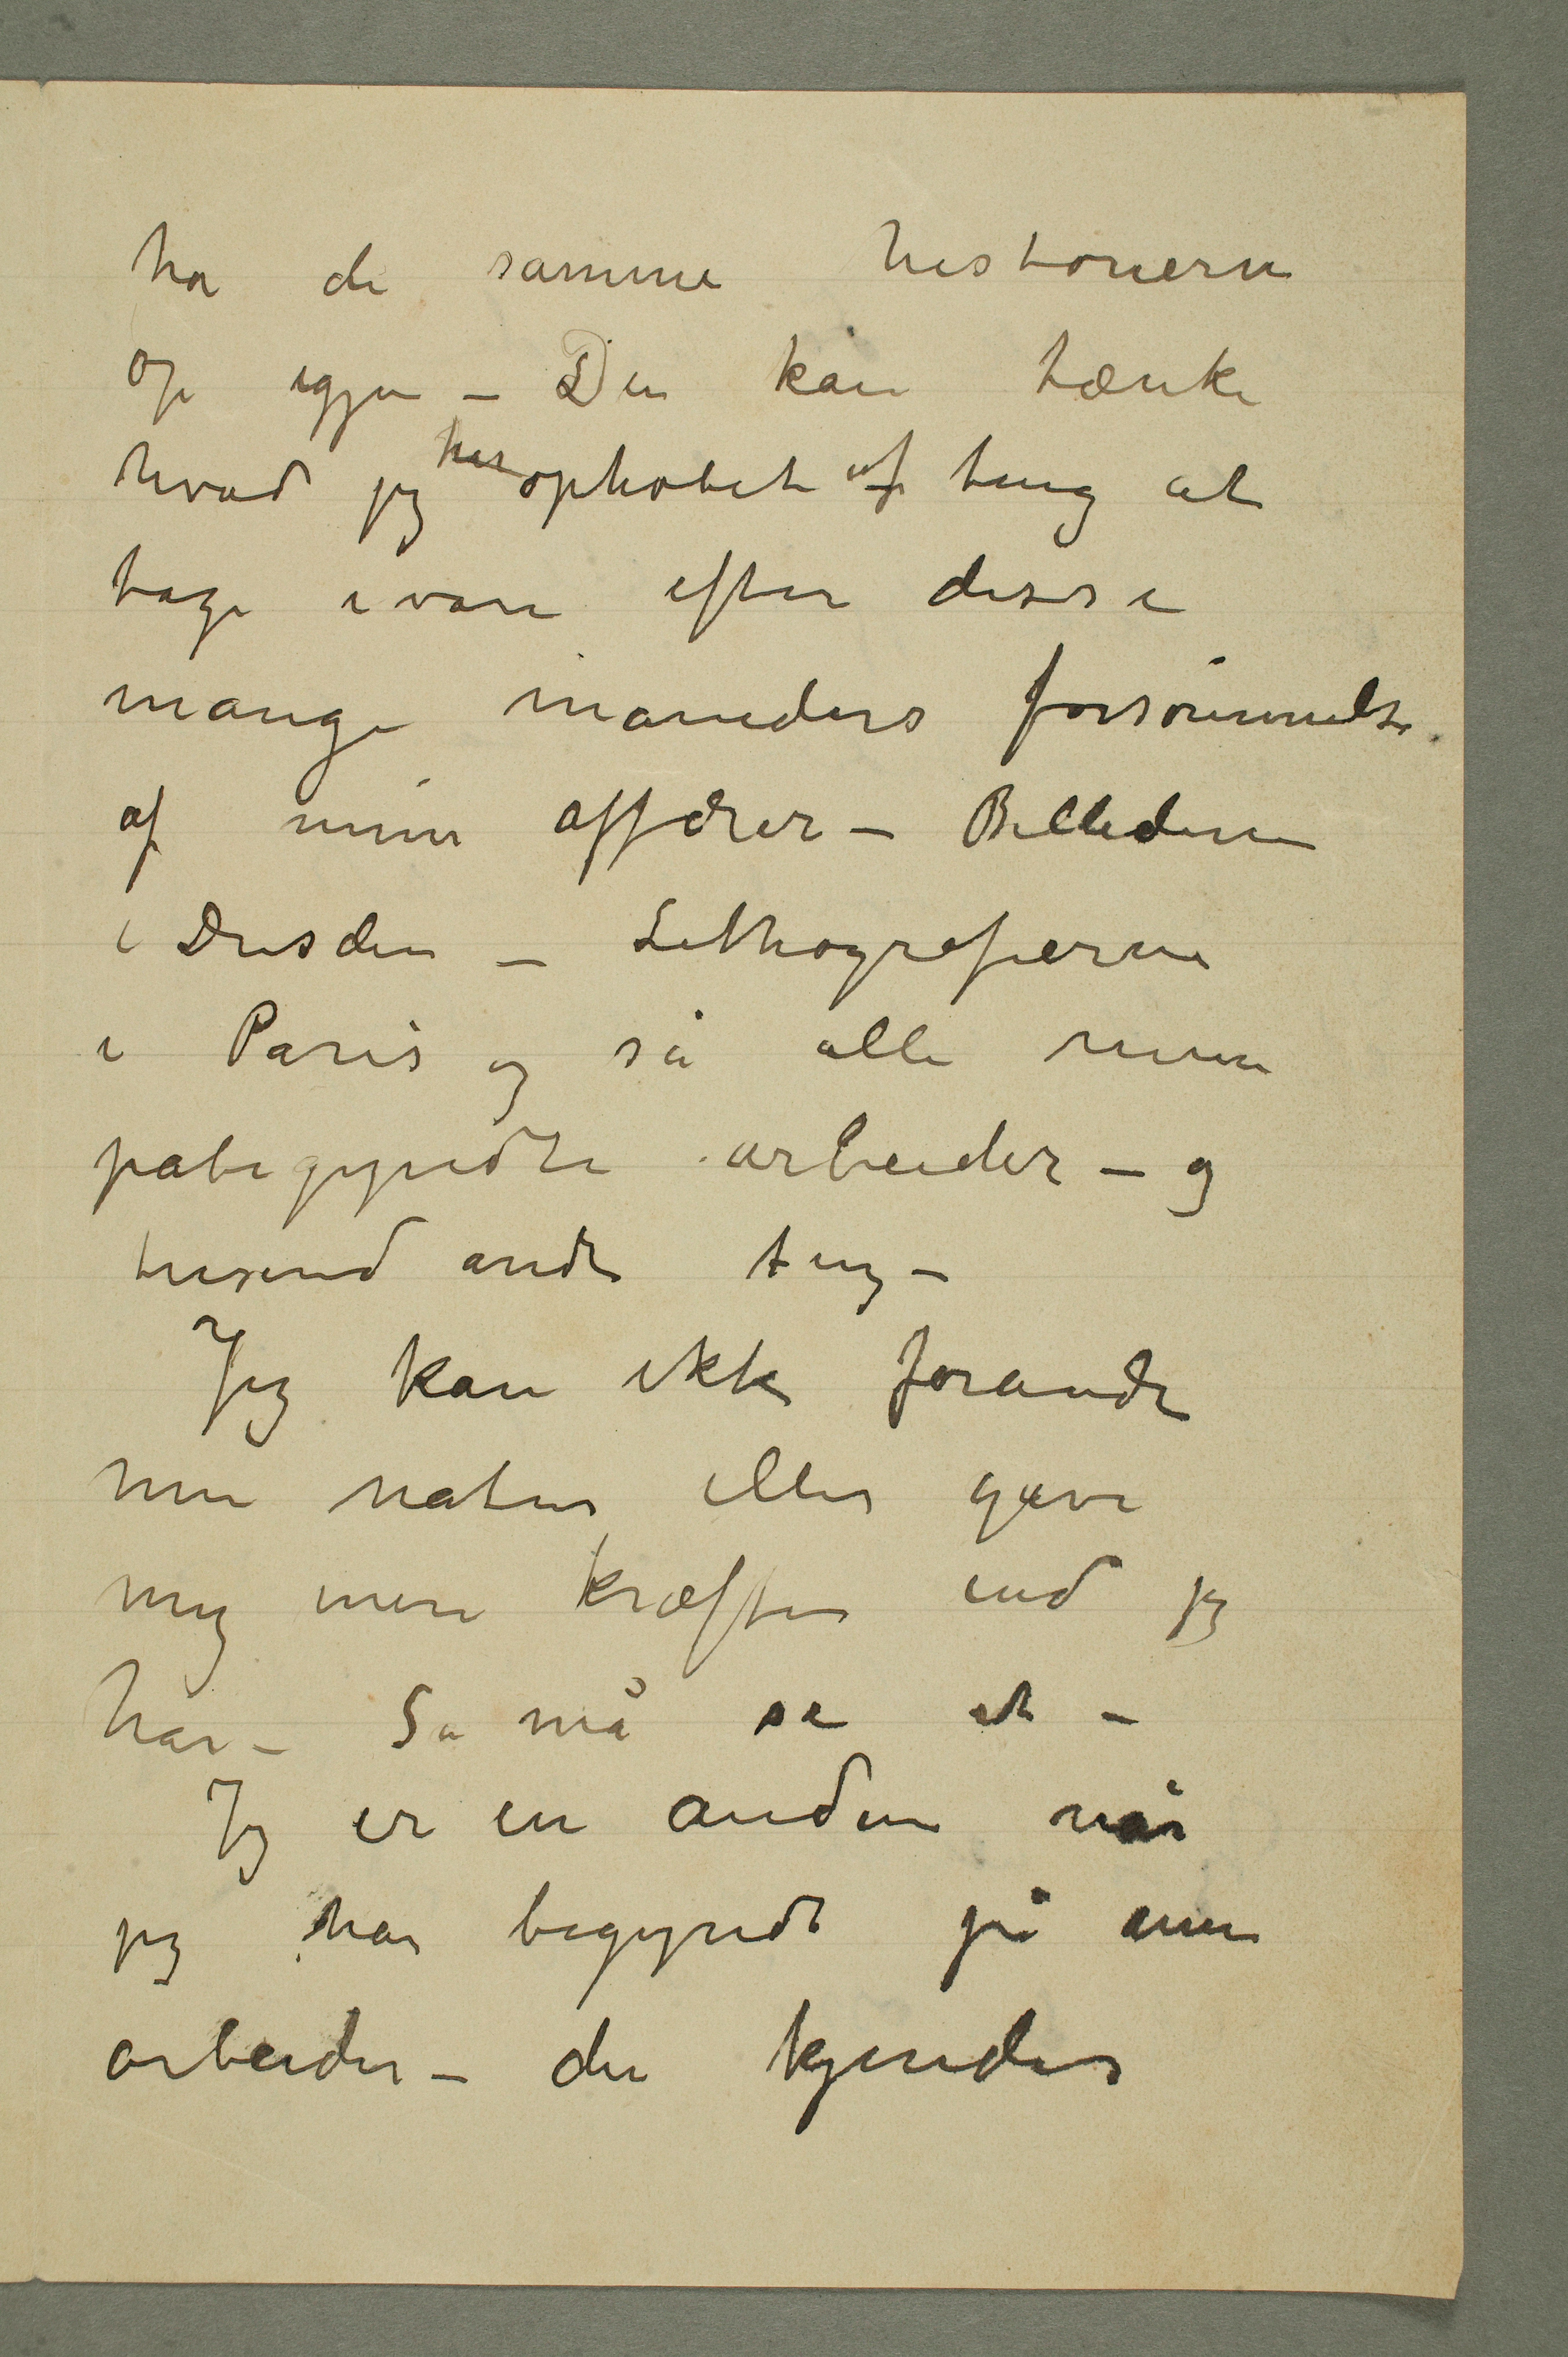 ha de samme historierne
op igjen – Du kan tænke
hvad jeg har ophobet af ting at
tage ivare efter disse
mange måneders forsømmelse
af mine affærer – Billederne
i Dresden – Lithografierne
i Paris og så alle mine
påbegyndte arbeider – og
tusend andre ting –
Jeg kan ikke forandre
min natur eller gøve
mig mere kræfter end jeg
har – Så må se at –
Jeg er en anden når
jeg har begyndt på mine
arbeider – du kjender